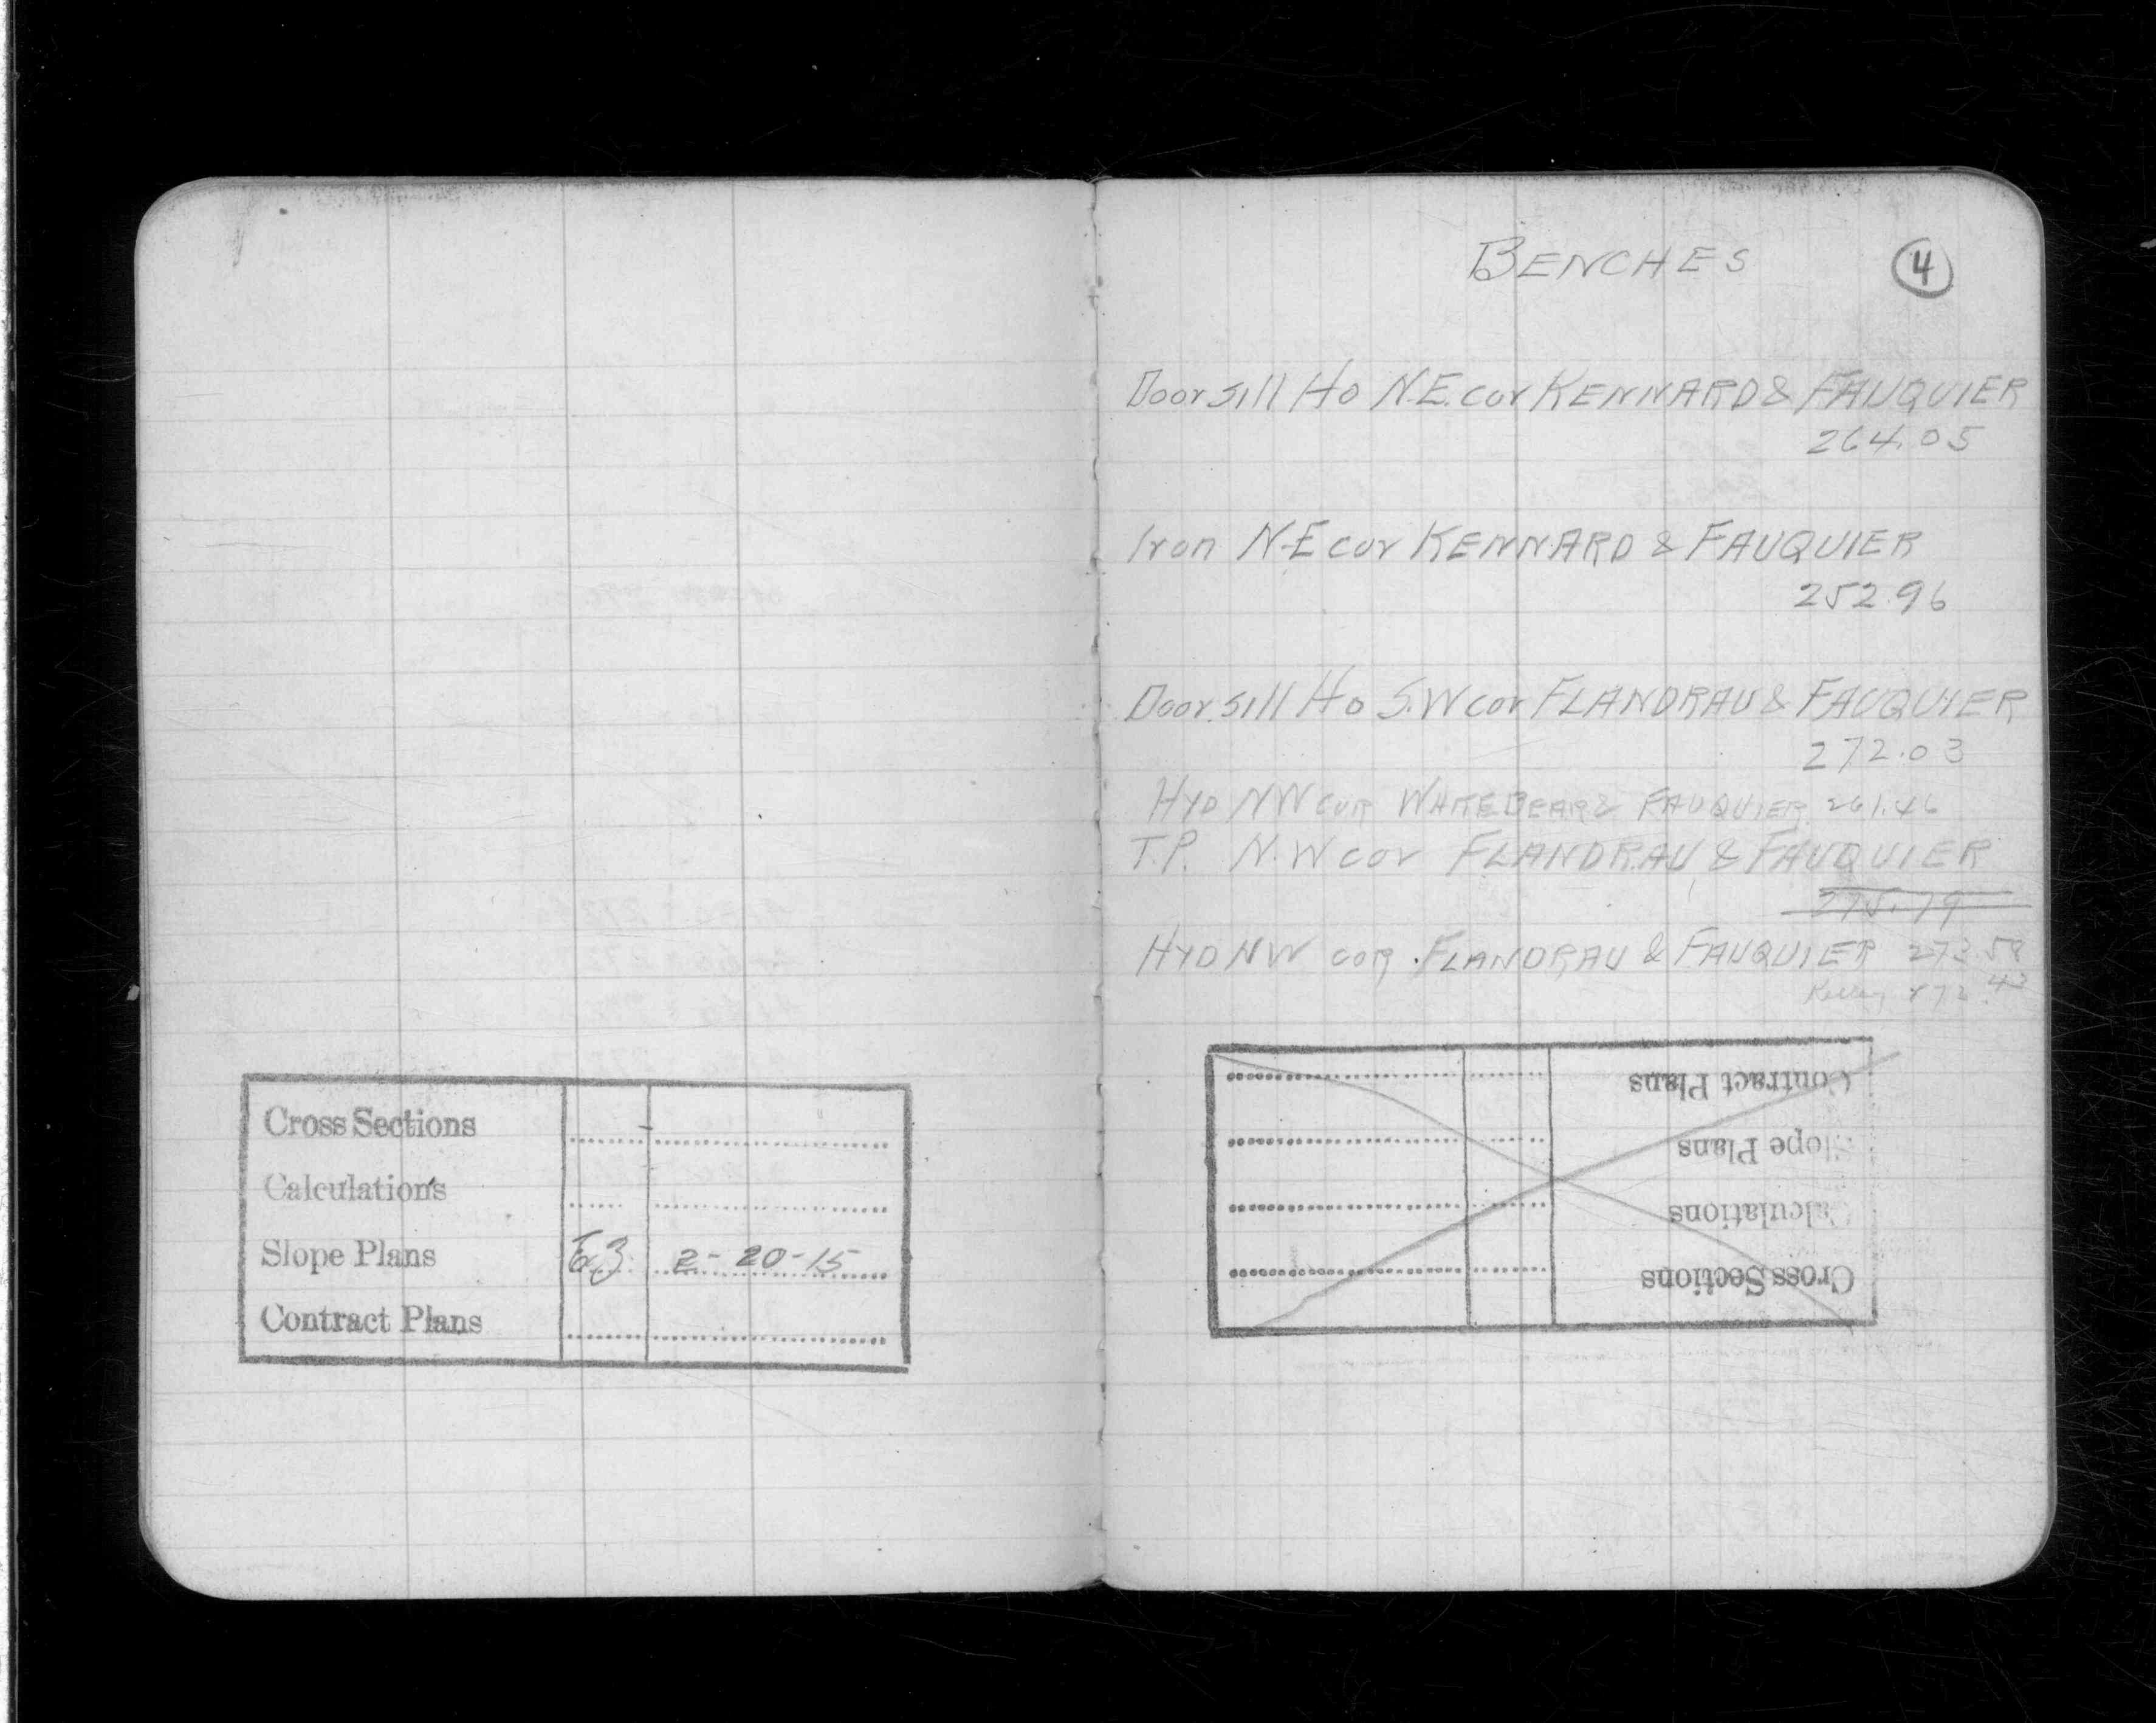 Cross Sections
Calculations
Slope Plans 2-20-15
Contract Plans
BENCHES
4
Door sill Ho N.E. cor KENNARD & FAUQUIER
264.05
Iron N-E cor KENNARD & FAUQUIER
252.96
Door sill Ho S.W cor FLANDRAU & FAUQUIER
272.03
HYD NW COR WHITEBEAR & FAUQUIER 261.46
T.P. N.W cor FLANDRAU & FAUQUIER
HYD NW COR. FLANDRAU & FAUQUIER 273.58
Contract Plans
Slope Plans
Calculations
Cross Sections